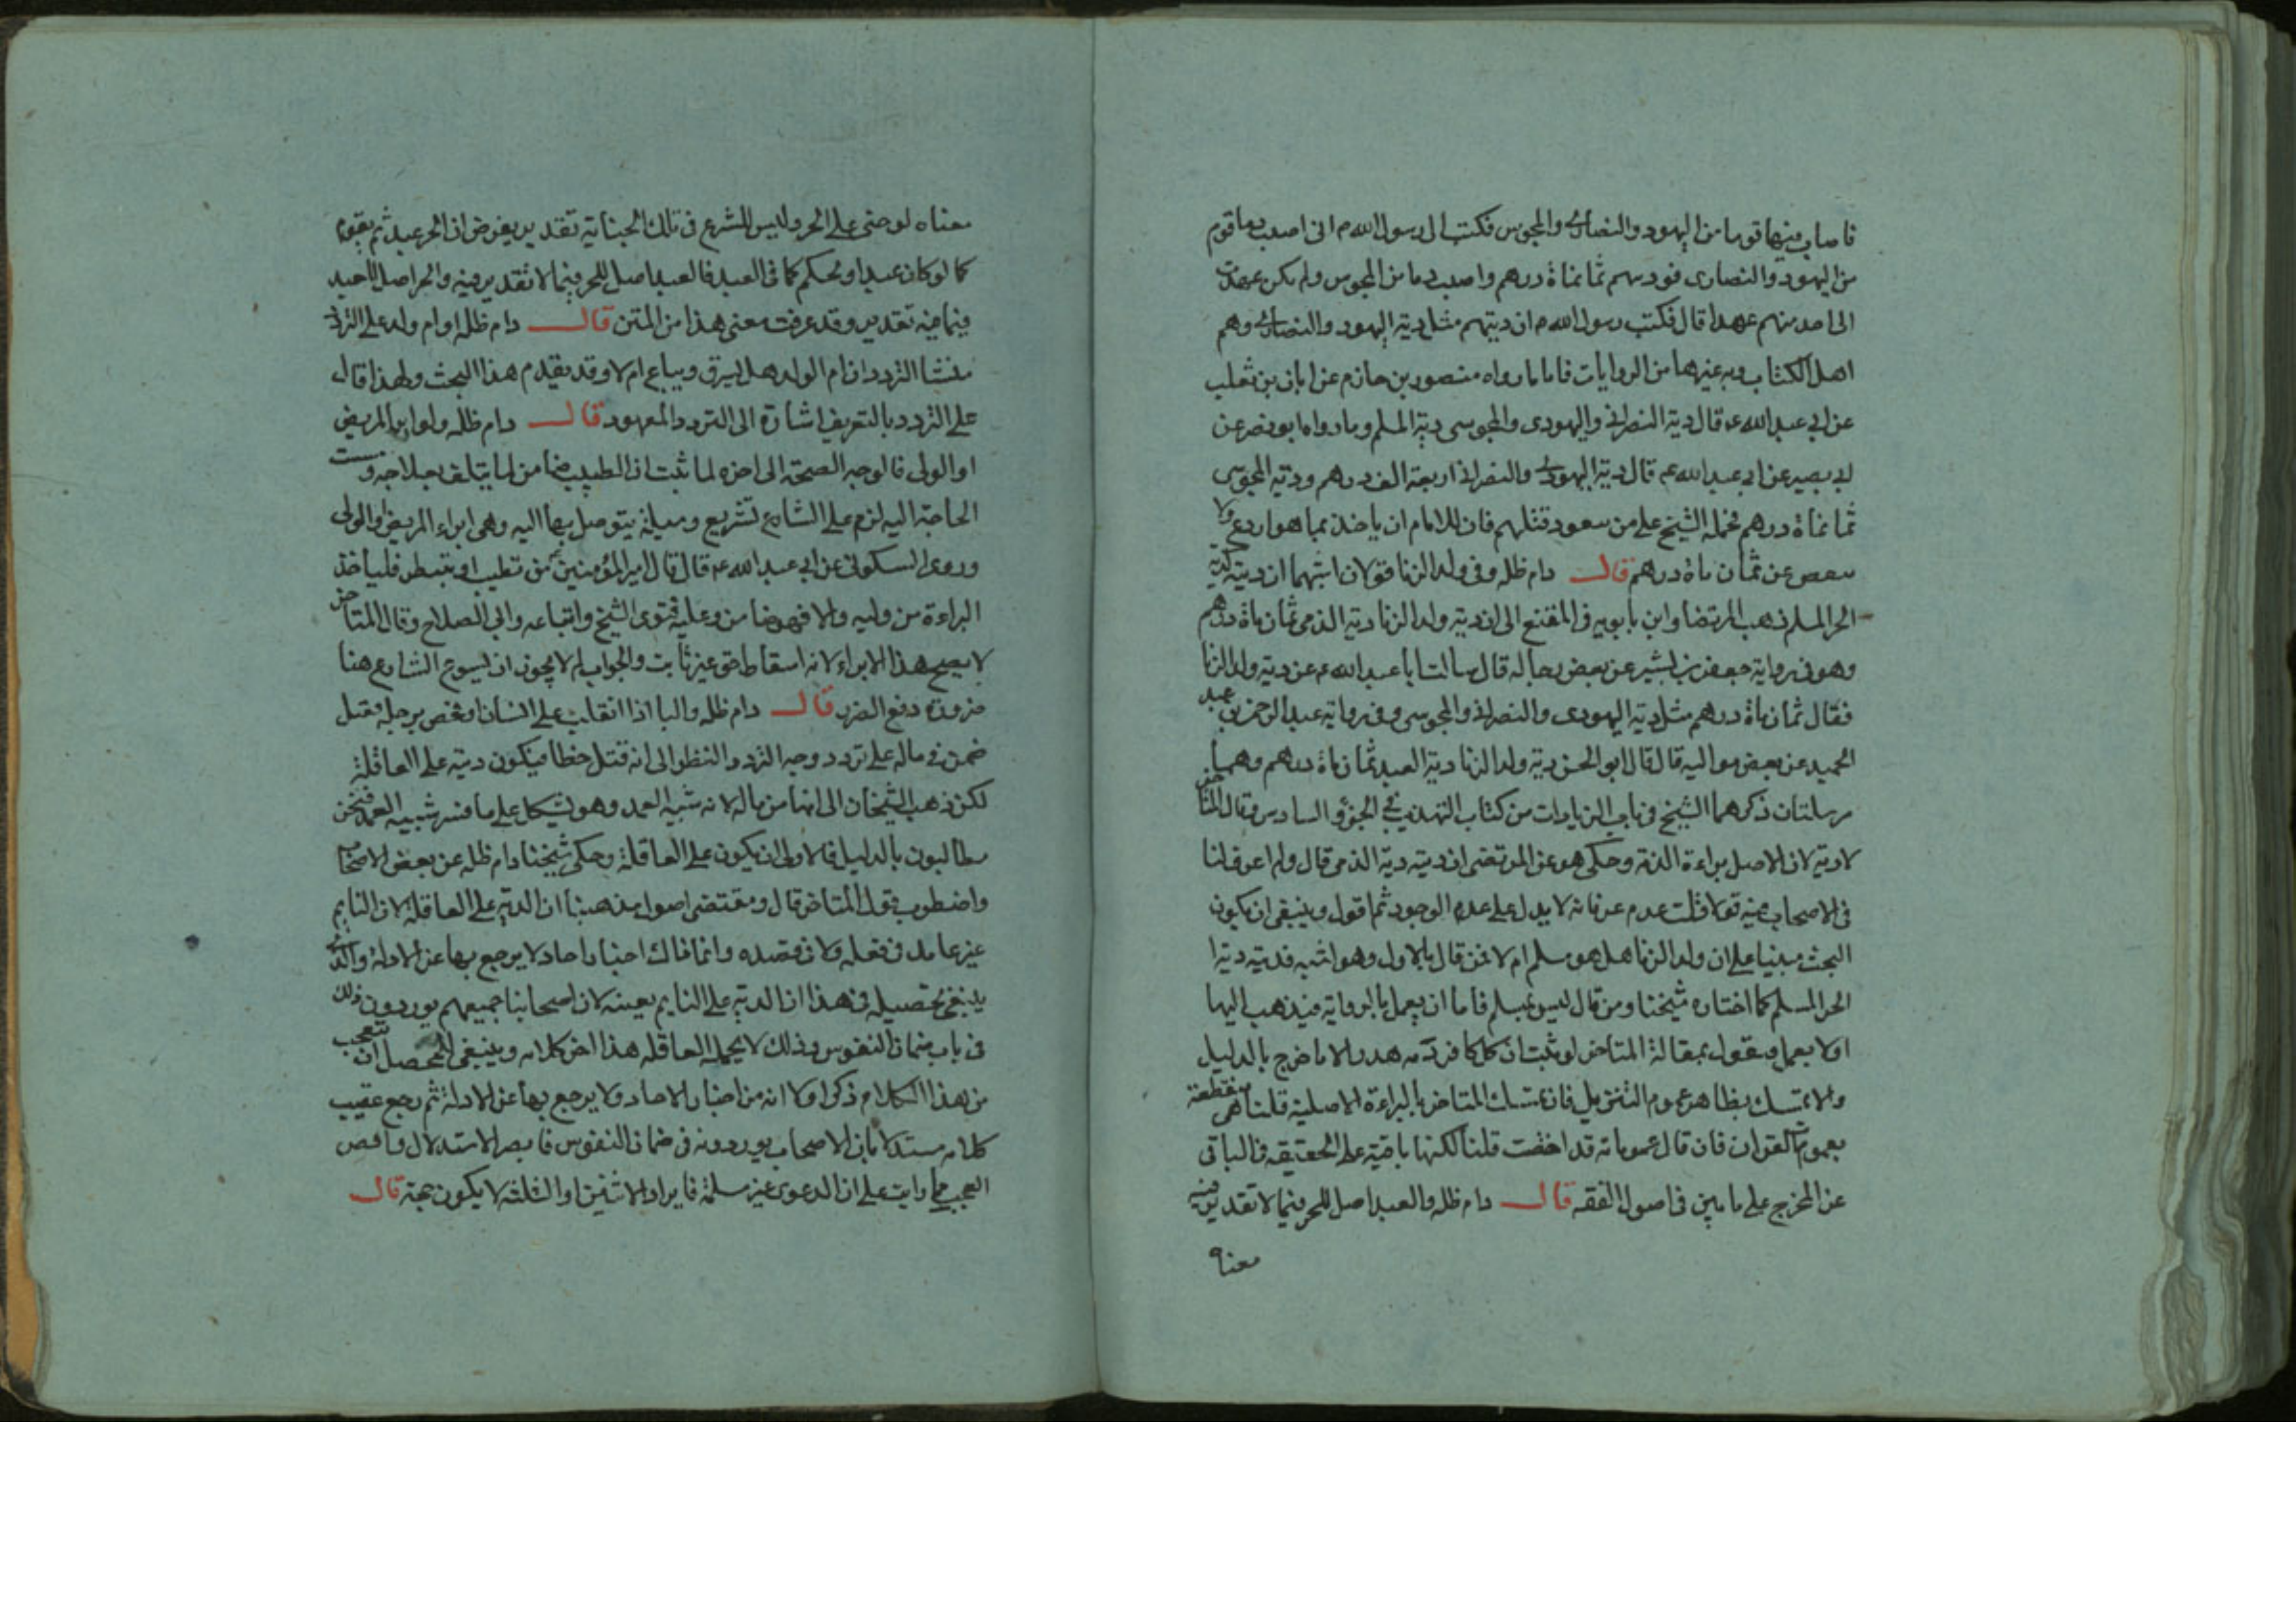 فاصاب فيها قوما من اليهود والنصارى والمجوس فكتب الى رسول الله م انى اصبت دما قوم
من اليهود والنصارى فوديتهم ثمانماة درهم واصبت دما من المجوس ولم يكن عهدت
الى احد منهم عهدا قال فكتب رسول الله م ان ديتهم مثل دية اليهود والنصارى وهم
اهل الكتاب وبه غيرها من الروايات فاما ما رواه منصور بن حازم عن ابان بن تغلب
عن ابى عبد الله ع قال دية النصرانى واليهودى والمجوسى دية المسلم وما رواه ابو بصير عن
ابى عبد الله ع قال دية اليهودى والنصرانى اربعة الف درهم ودية المجوسى
ثمانماة درهم فحمله الشيخ على من يتعود قتلهم فان للامام ان ياخذ بما هو اردع ولا
ينقص عن ثمان ماة درهم قال دام ظله وفى ولد الزنا قولان اشبههما ان ديته كدية
الحر المسلم ذهب المرتضا وابن بابويه فى المقنع الى ان دية ولد الزنا دية الذمى ثمان ماة درهم
وهو فى رواية جعفر بن بشير عن بعض رجاله قال سالت ابا عبد الله ع عن دية ولد الزنا
فقال ثمان ماة درهم مثل دية اليهودى والنصرانى والمجوسى وفى رواية عبد الرحمن بن عبد
الحميد عن بعض مواليه قال قال ابو الحسن دية ولد الزنا دية العبد ثمان ماة درهم وهما
مرسلتان ذكرهما الشيخ فى باب الزيادات من كتاب التهذيب فى الجزؤ السادس وقال المتاخر
لا دية لان الاصل براءة الذمة وحكى هو عن المرتضى ان ديته دية الذمى قال ولم اعرف لنا
فى الاصحاب فيه قولا قلت عدم عرفانه لا يدل على عدم الوجود ثم اقول وينبغى ان يكون
البحث مبنيا على ان ولد الزنا هل هو مسلم ام لا فمن قال بالاول وهو اشبه فديته دية
الحر المسلم كما اختاره شيخنا ومن قال ليس بمسلم فاما ان يعمل بالرواية فيذهب اليها
او لا يعمل ويقول بمقالة المتاخر لو ثبت ان كل كافر دمه هدر الا ما خرج بالدليل
والا يتمسك بظاهر عموم التنزيل فان تمسك المتاخر بالبراءة الاصلية قلنا هى منقطعة
بعموم القران فان قال عموماته قد اخصت قلنا لكنها باقية على الحقيقه فى الباقى
عن المخرج على ما بين فى اصول الفقه قال دام ظله والعبد اصل للحر فيما لا تقدير فيه
معناه
معناه لو جنى على الحر وليس للشرع فى تلك الجناية تقدير يفرض ان الحر عبد ثم يقوم
كما لو كان عبدا ويحكم كما فى العبد فالعبد اصل للحر فيما لا تقدير فيه والحر اصل للعبد
فيما فيه تقدير وقد عرفت معنى هذا من المتن قال دام ظله او ام ولد على التردد
منشا التردد ان ام الولد هل يسترق ويباع ام لا وقد تقدم هذا البحث ولهذا قال
على التردد بالتعريف اشارة الى التردد المعهود قال دام ظله ولو ابرا المريض
او الولى فالوجه الصحة الى اخره لما ثبت ان الطبيب ضامن لما يتلف بعلاجه ومست
الحاجة اليه لزم على الشارع تشريع وسيلة يتوصل بها اليه وهى ابراء المريض او الولى
وروى السكونى عن ابى عبد الله ع قال قال امير المؤمنين ع من تطبب او تبيطر فلياخذ
البراءة من وليه والا فهو ضامن وعليه فتوى الشيخ واتباعه وابى الصلاح وقال المتاخر
لا يصح هذا الابراء لانه اسقاط حق غير ثابت والجواب لم لا يجوز ان يسوغ الشارع هنا
ضرورة دفع الضرر قال دام ظله والنا اذا انقلب على انسان او فحص برجله فقتل
ضمن فى ماله على تردد وجه التردد النظر الى انه قتل خطا فيكون ديته على العاقلة
لكن ذهب الشيخان الى انها من ماله لانه شبيه العمد وهو يشكل على ما فسر شبيه العمد فنحن
مطالبون بالدليل فالاولى ان يكون على العاقلة وحكى شيخنا دام ظله عن بعض الاصحاب
واضطرب قول المتاخر قال ومقتضى اصول مذهبنا ان الدية على العاقلة لان النايم
غير عامد فى فعله ولا فى قصده وانما تلك اخبار احاد لا يرجع بها عن الادلة والذى
ينبغى تحصيله فى هذا ان الدية على النايم بعينه لان اصحابنا جميعهم يوردون ذلك
فى باب ضمان النفوس وذلك لا يحمله العاقلة هذا اخر كلامه وينبغى للمحصل ان يتعجب
من هذا الكلام ذكر اولا انه من اخبار الاحاد ولا يرجع بها عن الادلة ثم رجع عقيب
كلامه مستدلا بان الاصحاب يوردونه فى ضمان النفوس فابصر الاستدلال واقص
العجب مما رايت على ان الدعوى غير مسلمة فايراد الاثنين او الثلثه لا يكون حجة قال